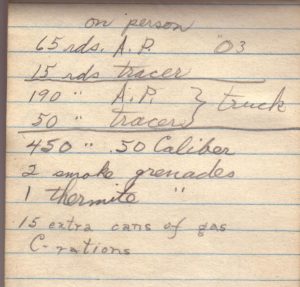 on person
65 rds. A.P. '03
15 rds tracer
190 " A.P. } truck
50 " tracers
450 " .50 Caliber
2 smoke grenades
1 thermite "
15 extra cans of gas
C-rations